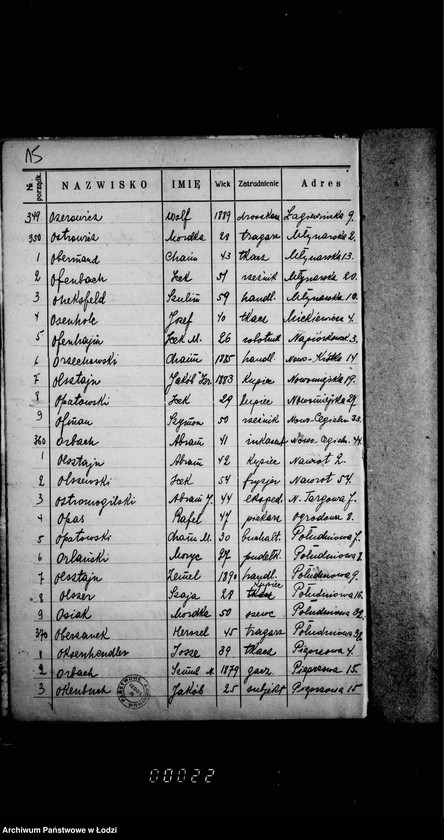 15
№ porządk. NAZWISKO IMIĘ Wiek Zatrudnienie Adres
349 Oserowicz Wolf 1889 Łagiewnicka 9.
350 Ostrowicz Mordka 21 tragarz Młynarska 2.
1 Obermard Chaim 43 tkacz Młynarska 13.
2 Ofenbach Icek 51 rzeźnik Młynarska 20.
3 Szulim 59 handl. Młynarska 10.
4 Osenholc Josef 40 tkacz Mickiewicza 4.
5 Icek M. 26 robotnik Napiórkowsk. 3.
6 Orzechowski Chaim 1885 handl. Nowo-Kątko 14
7 Olsztajn Jakób Izr. 1883 kupiec Nowomiejska 19.
8 Opatowski Icek 29 kupiec Nowomiejska 29.
9 Ofman Szymon 50 rzeźnik Nowo-Cegieln. 33.
360 Orbach Abram 41 inkasent Nowo-Cegieln. 44.
1 Olsztajn Abram 42 kupiec Nawrot 2.
2 Olszewski Icek 54 fryzjer Nawrot 54.
3 Ostromogilski Abram J. 44 eksped. N. Targowa 7.
4 Opas Rafel 47 piekarz Ogrodowa 8.
5 Opatowski Chaim M. 30 buchalt. Południowa 7.
6 Orlański Moryc 27 pudełk. Południowa 8.
7 Olsztajn Zemel 1890 handl. Południowa 9.
8 Olszer Szaja 28 tkacz kupiec Południowa 16.
9 Osiak Mordka 50 szewc Południowa 32.
370 Obersanek Herszel 45 tragarz Południowa 32.
1 Oksenhendler Josse 39 tkacz Pieprzowa 4.
2 Orbach Szmul M. 1879 Pieprzowa 15.
3 Okenbuch Jakób 25 subjekt Pieprzowa 15
00022
Archiwum Państwowe w Łodzi